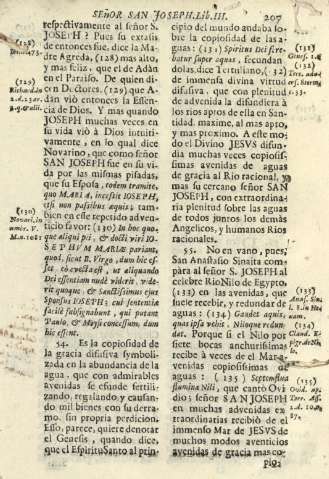 SEñOR SAN JOSEPH. Lib. III. 207
respectivamente al señor S.
JOSEPH? Pues su extasis
de entonces fue, dice la Ma-
dre Agreda, (128) mas alto,
y mas feliz, que el de Adàn
en el Paraíso. De quien di-
cen Doctores, (129) que A-
dàn viò entonces la Essen-
cia de Dios. Y mas quando
JOSEPH muchas veces en
su vida viò à Dios intuiti-
vamente, en lo qual dice
Novarino, que como señor
SAN JOSEPH fue en su vi-
da por las mismas pisadas,
que su Esposa, eodem tramite,
quo MARIA, incessit IOSEPH,
etsi non passibus æquis; tam-
bien en esse repetido adven-
ticio favor: (130) In hoc quo-
que aliqui pii, & docti viri IO-
SEPHUM MARIÆ pariant,
quod, sicut B. Virgo, dum hic es-
set ut aliquando
Dei essentiam nudè viderit, vide-
rit quoque, & sanctissimus ejus
Sponsus IOSEPH; cui sententiæ
facilè subsignabunt, qui putant
Paulo, & Moysi concessum, dum
hic essent.
54. Es la copiosidad de
la gracia difusiva symboli-
zada en la abundancia de la
agua, que con admirables
avenidas se efunde fertili-
zando, regalando, y causan-
do mil bienes con su derra-
mo, sin propria perdicion.
Esso, parece, quiere denotar
el Genesis, quando dice,
que el Espiritu Santo al prin-
(128)
(129)
Richard. in
(130)
Novari. in
cipio del mundo andaba so-
bre la copiosidad de las a-
guas: (131) Spiritus Dei fere-
batur super aquas, fecundan
dolas, dice Tertuliano, (132)
la immensa divina virtud
difusiva, que con plenitud
de advenida la difundiera à
los rios aptos de ella en San-
tidad, maxime, al mas apto,
y mas proximo. A este mo-
do el Divino JESVS difun-
dia muchas veces copiosis-
simas avenidas de aguas
de gracia al Rio racional, y
mas su cercano señor SAN
JOSEPH, con extraordina-
ria plenitud sobre las aguas
de todos juntos los demàs
Angelicos, y humanos Rios
racionales.
55. No en vano, pues,
San Anastasio Sinaita com-
pàra al señor S. JOSEPH al
celebre Rio Nilo de Egypto,
(133) en las avenidas, que
suele recibir, y redundar de
aguas: (134) Gaudet aquis,
quas ipsa vehit, Niloque redun-
dat. Porque si el Nilo por
siete bocas anchurissimas
recibe à veces de el Mar a-
venidas copiosissimas de
aguas: (135) Septemflua
flumina Nili, que cantò Ovi-
dio; señor SAN JOSEPH
en muchas advenidas ex-
traordinarias recibiò de el
immenso Mar de JESVS de
muchos modos aventicios
avenidas de gracia mas co-
pio-
(131)
(132)
(133)
(134)
(135)